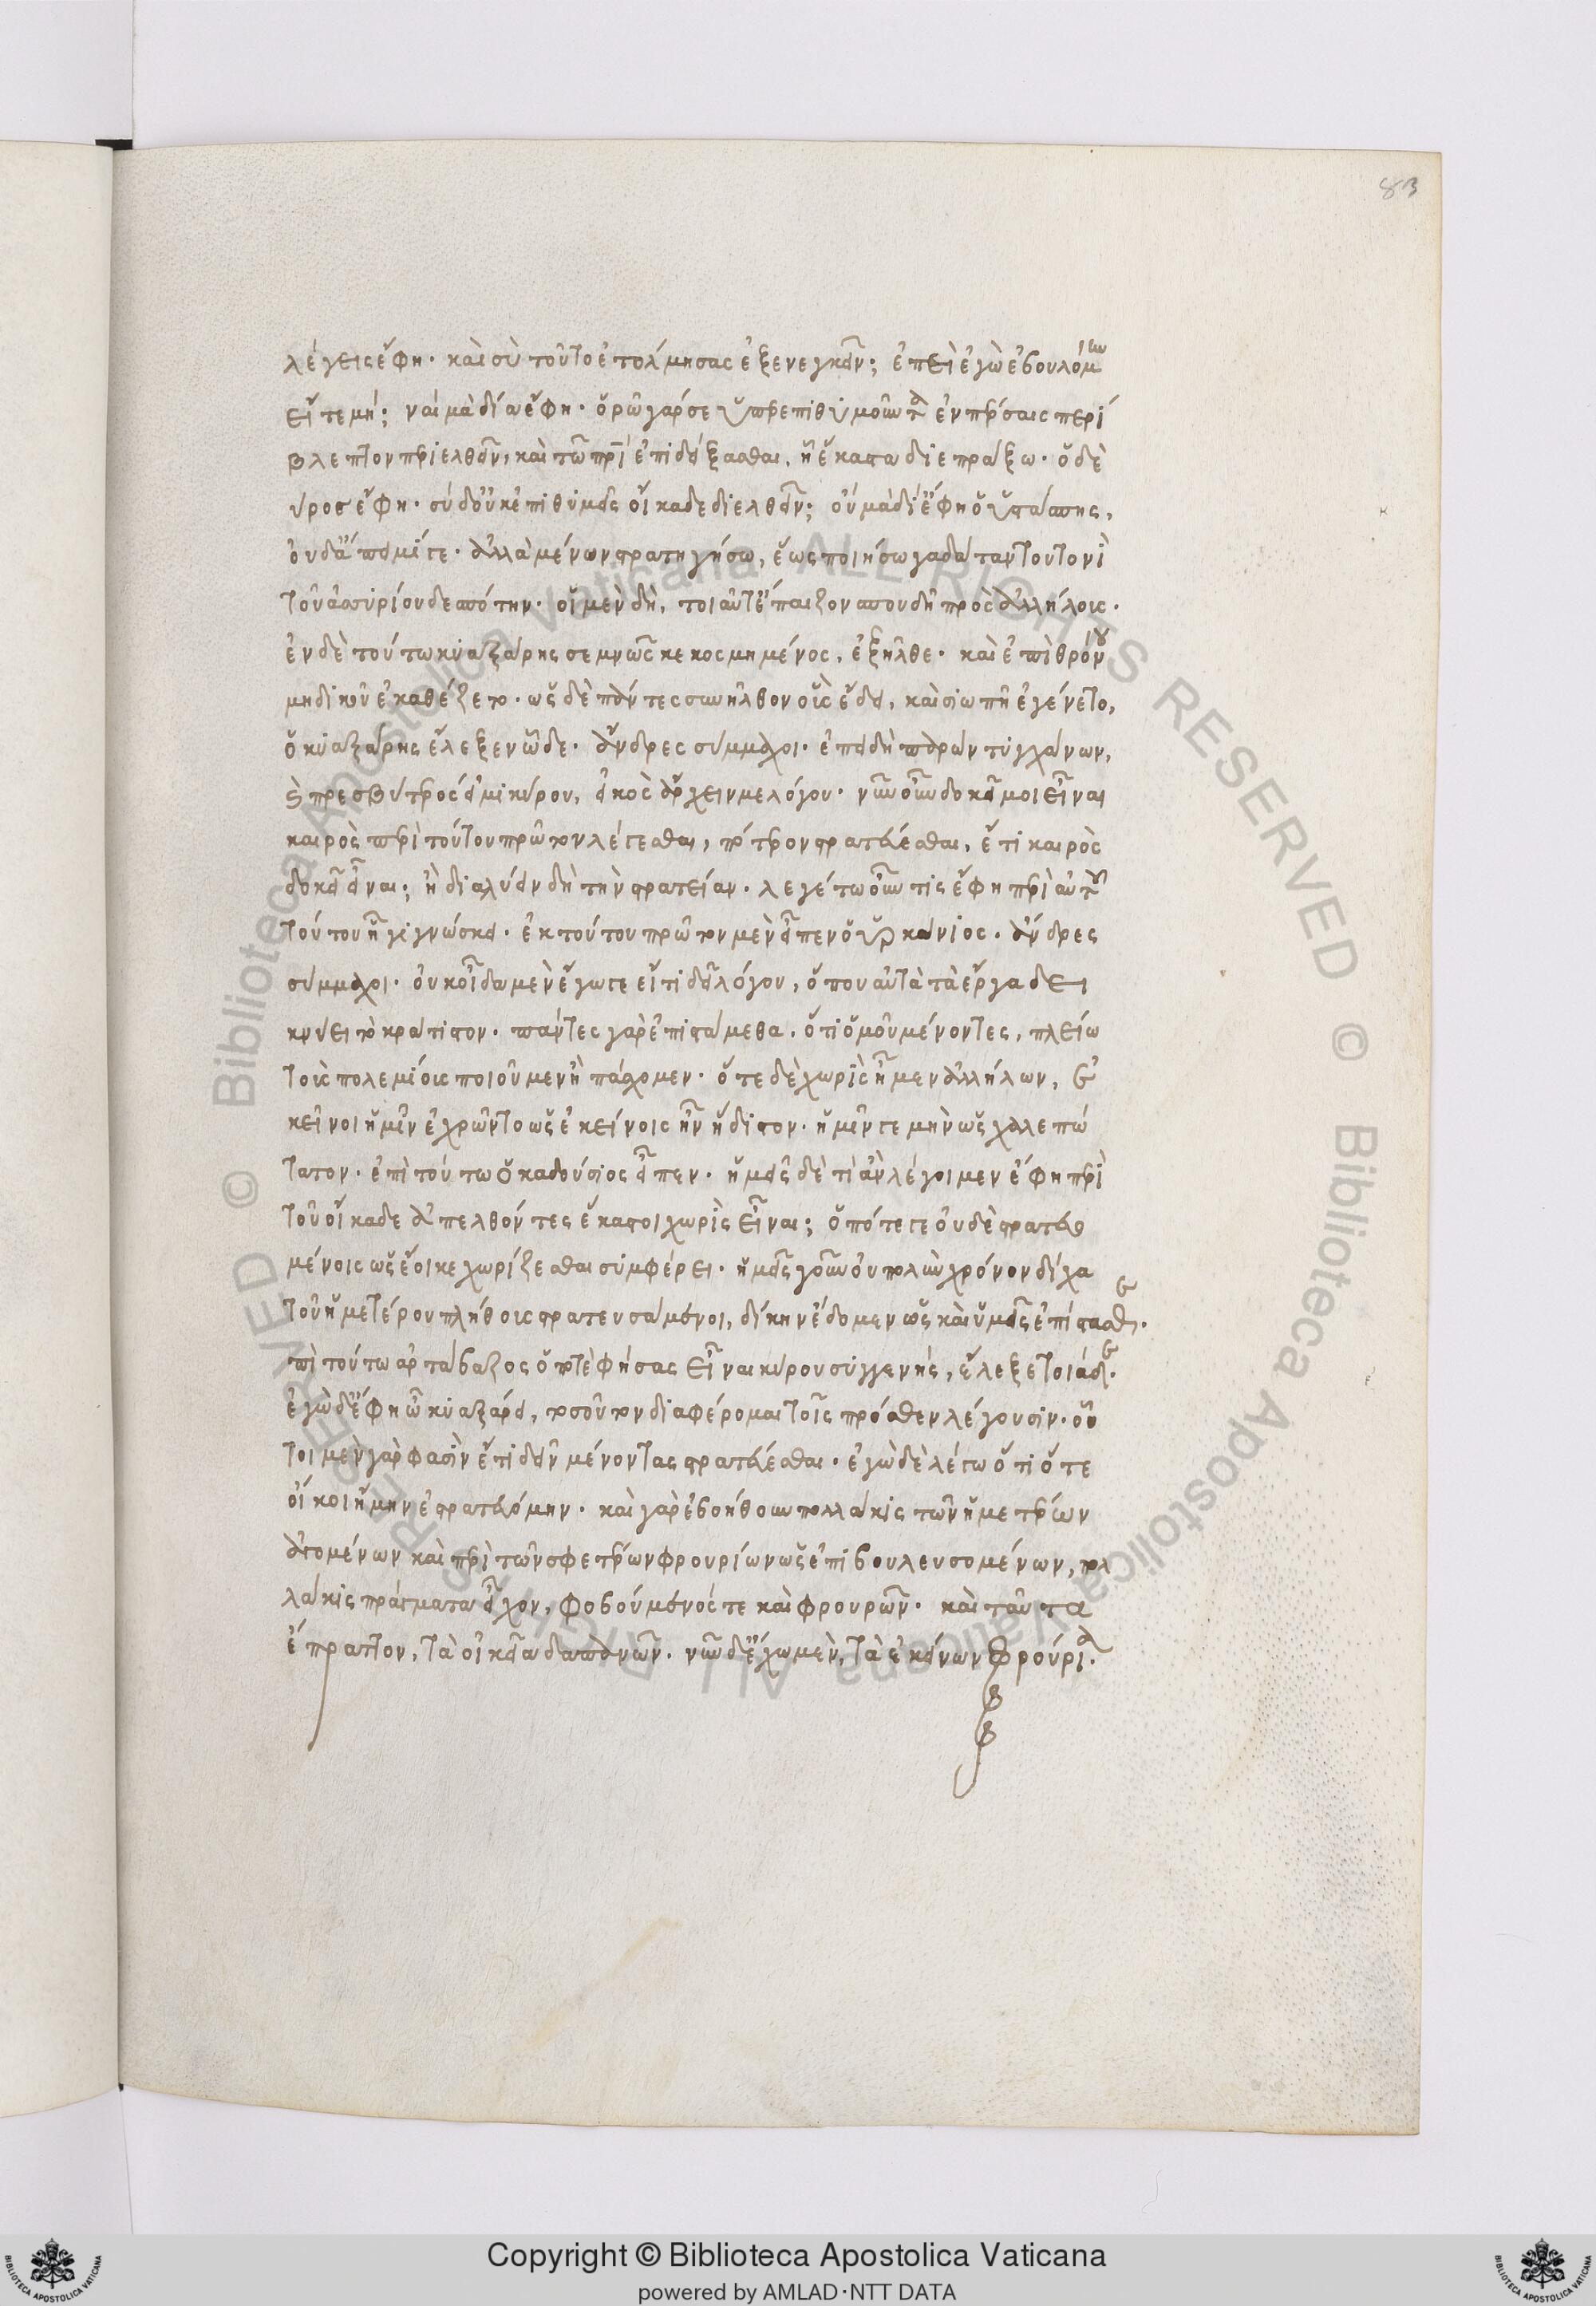 83
λέγεις ἔφη· καὶ σὺ τοῦτο ἐτόλμησας ἐξενεγκεῖν; ἐπεὶ ἐγὼ ἐβουλόμην
εἴτε μή; ναὶ μὰ δία ἔφη· ὁρῶ γάρ σε ὑπερεπιθυμοῦντα ἐν πέρσαις περί
βλεπτον περιελθεῖν, καὶ τῶ πατρὶ ἐπιδείξασθαι, ἧ ἕκαστα διεπράξω· ὁ δὲ
ῦρος ἔφη· σὺ δ' οὐκ ἐπιθυμεῖς οἴκαδε διελθεῖν; οὐ μὰ δί' ἔφη ὁ ὑστάσπης,
οὐδ' ἄπειμί γε· ἀλλὰ μένων στρατηγήσω, ἕως ποιήσω γαδάταν τουτονὶ
τοῦ ἀσσυρίου δεσπότην· οἱ μὲν δὴ, τοιαῦτ' ἔπαιζον σπουδῆ πρὸς ἀλλήλους·
ἐν δὲ τούτω κυαξάρης σεμνῶς κεκοσμημένος, ἐξῆλθε· καὶ ἐπὶ θρόνου
μηδικοῦ ἐκαθέζετο· ὡς δὲ πάντες συνῆλθον οὓς ἔδει, καὶ σιωπὴ ἐγένετο,
ὁ κυαξάρης ἔλεξεν ὧδε· ἄνδρες σύμμαχοι· ἐπειδὴ παρὼν τυγχάνων,
καὶ πρεσβύτερός εἰμι κύρου, εἰκὸς ἄρχειν με λόγου· νῦν οὖν δοκεῖ μοι εἶναι
καιρὸς περὶ τούτου πρῶτον λέγεσθαι, πότερον στρατεύεσθαι, ἔτι καιρὸς
δοκεῖ εἶναι; ἢ διαλύειν δὴ τὴν στρατείαν· λεγέτω οὖν τις ἔφη περὶ αὐτοῦ
τούτου ἧ γιγνώσκει· ἐκ τούτου πρῶτον μὲν εἶπεν ὁ ὑρκάνιος· ἄνδρες
σύμμαχοι· οὐκ οἶδα μὲν ἔγωγε εἴ τι δεῖ λόγου, ὅπου αὐτὰ τὰ ἔργα δει
κνύει τὸ κράτιστον· πάντες γὰρ ἐπιστάμεθα, ὅτι ὁμοῦ μένοντες, πλείω
τοὺς πολεμίους ποιοῦμεν ἢ πάσχομεν· ὅτε δὲ χωρὶς ἦμεν ἀλλήλων, ἐ
κεῖνοι ἡμῖν ἐχρῶντο ὡς ἐκείνοις ἦν ἥδιστον· ἡμῖν γε μὴν ὡς χαλεπώ
τατον· ἐπὶ τούτω ὁ καδούσιος εἶπεν· ἡμεῖς δὲ τί ἂν λέγοιμεν ἔφη περὶ
τοῦ οἴκαδε ἀπελθόντες ἕκαστοι χωρὶς εἶναι; ὁπότε γε οὐδὲ στρατευο
μένοις ὡς ἔοικε χωρίζεσθαι συμφέρει· ἡμεῖς γοῦν οὐ πολὺν χρόνον δίχα
τοῦ ἡμετέρου πλήθους στρατευσάμενοι, δίκην ἔδομεν ὡς καὶ ὑμεῖς ἐπίστασθε· ἐ
πὶ τούτω ἀρτάβαζος ὁ ποτὲ φήσας εἶναι κύρου συγγενής, ἔλεξε τοιάδε·
ἐγὼ δ' ἔφη ὦ κυαξάρει, τοσοῦτον διαφέρομαι τοῖς πρόσθεν λέγουσιν· οὗ
τοι μὲν γὰρ φασὶν ἔτι δεῖν μένοντας στρατεύεσθαι· ἐγὼ δὲ λέγω ὅτι ὅτε
οἴκοι ἤμην ἐστρατευόμην· καὶ γὰρ ἐβοήθουν πολλάκις τῶν ἡμετέρων
ἀγομένων καὶ περὶ τῶν σφετέρων φρουρίων ὡς ἐπιβουλευσομένων, πολ
λάκις πράγματα εἶχον, φοβούμενός τε καὶ φρουρῶν· καὶ ταῦτα
ἔπραττον, τὰ οἰκεῖα δαπανῶν· νῦν δ' ἔχωμὲν, τὰ ἐκείνων φρούρια·